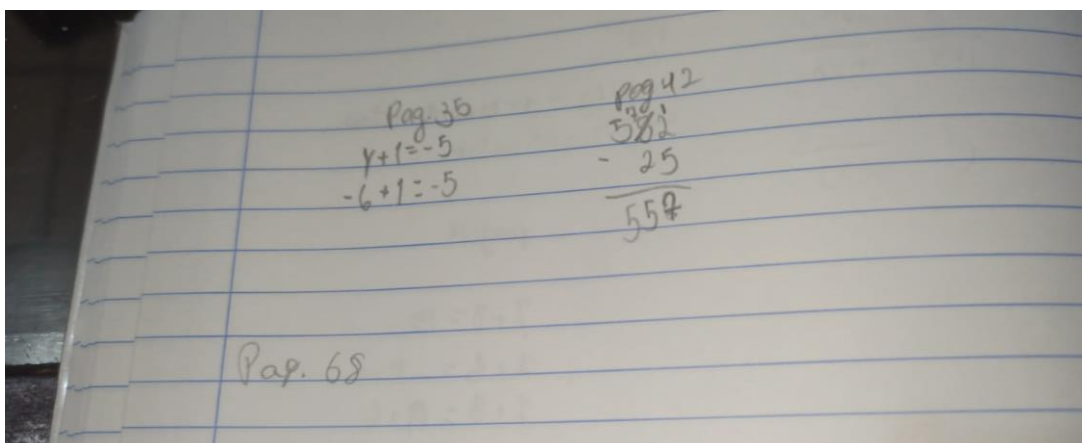 Pag. 36
y+1=-5
-6+1=-5
pag 42
582
- 25
557
Pag. 68